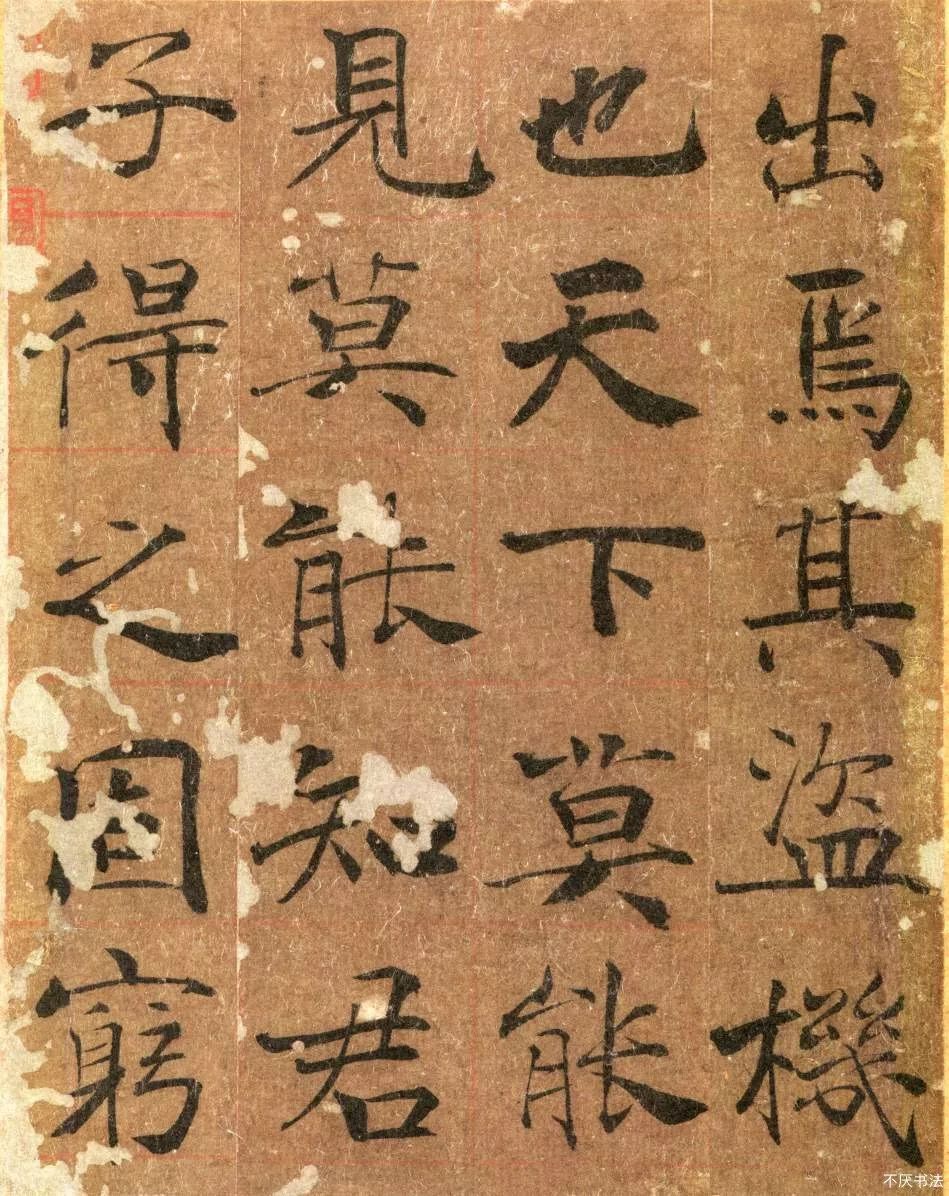 出焉其盗機
也天下莫能
見莫能知君
子得之固窮
不厌书法